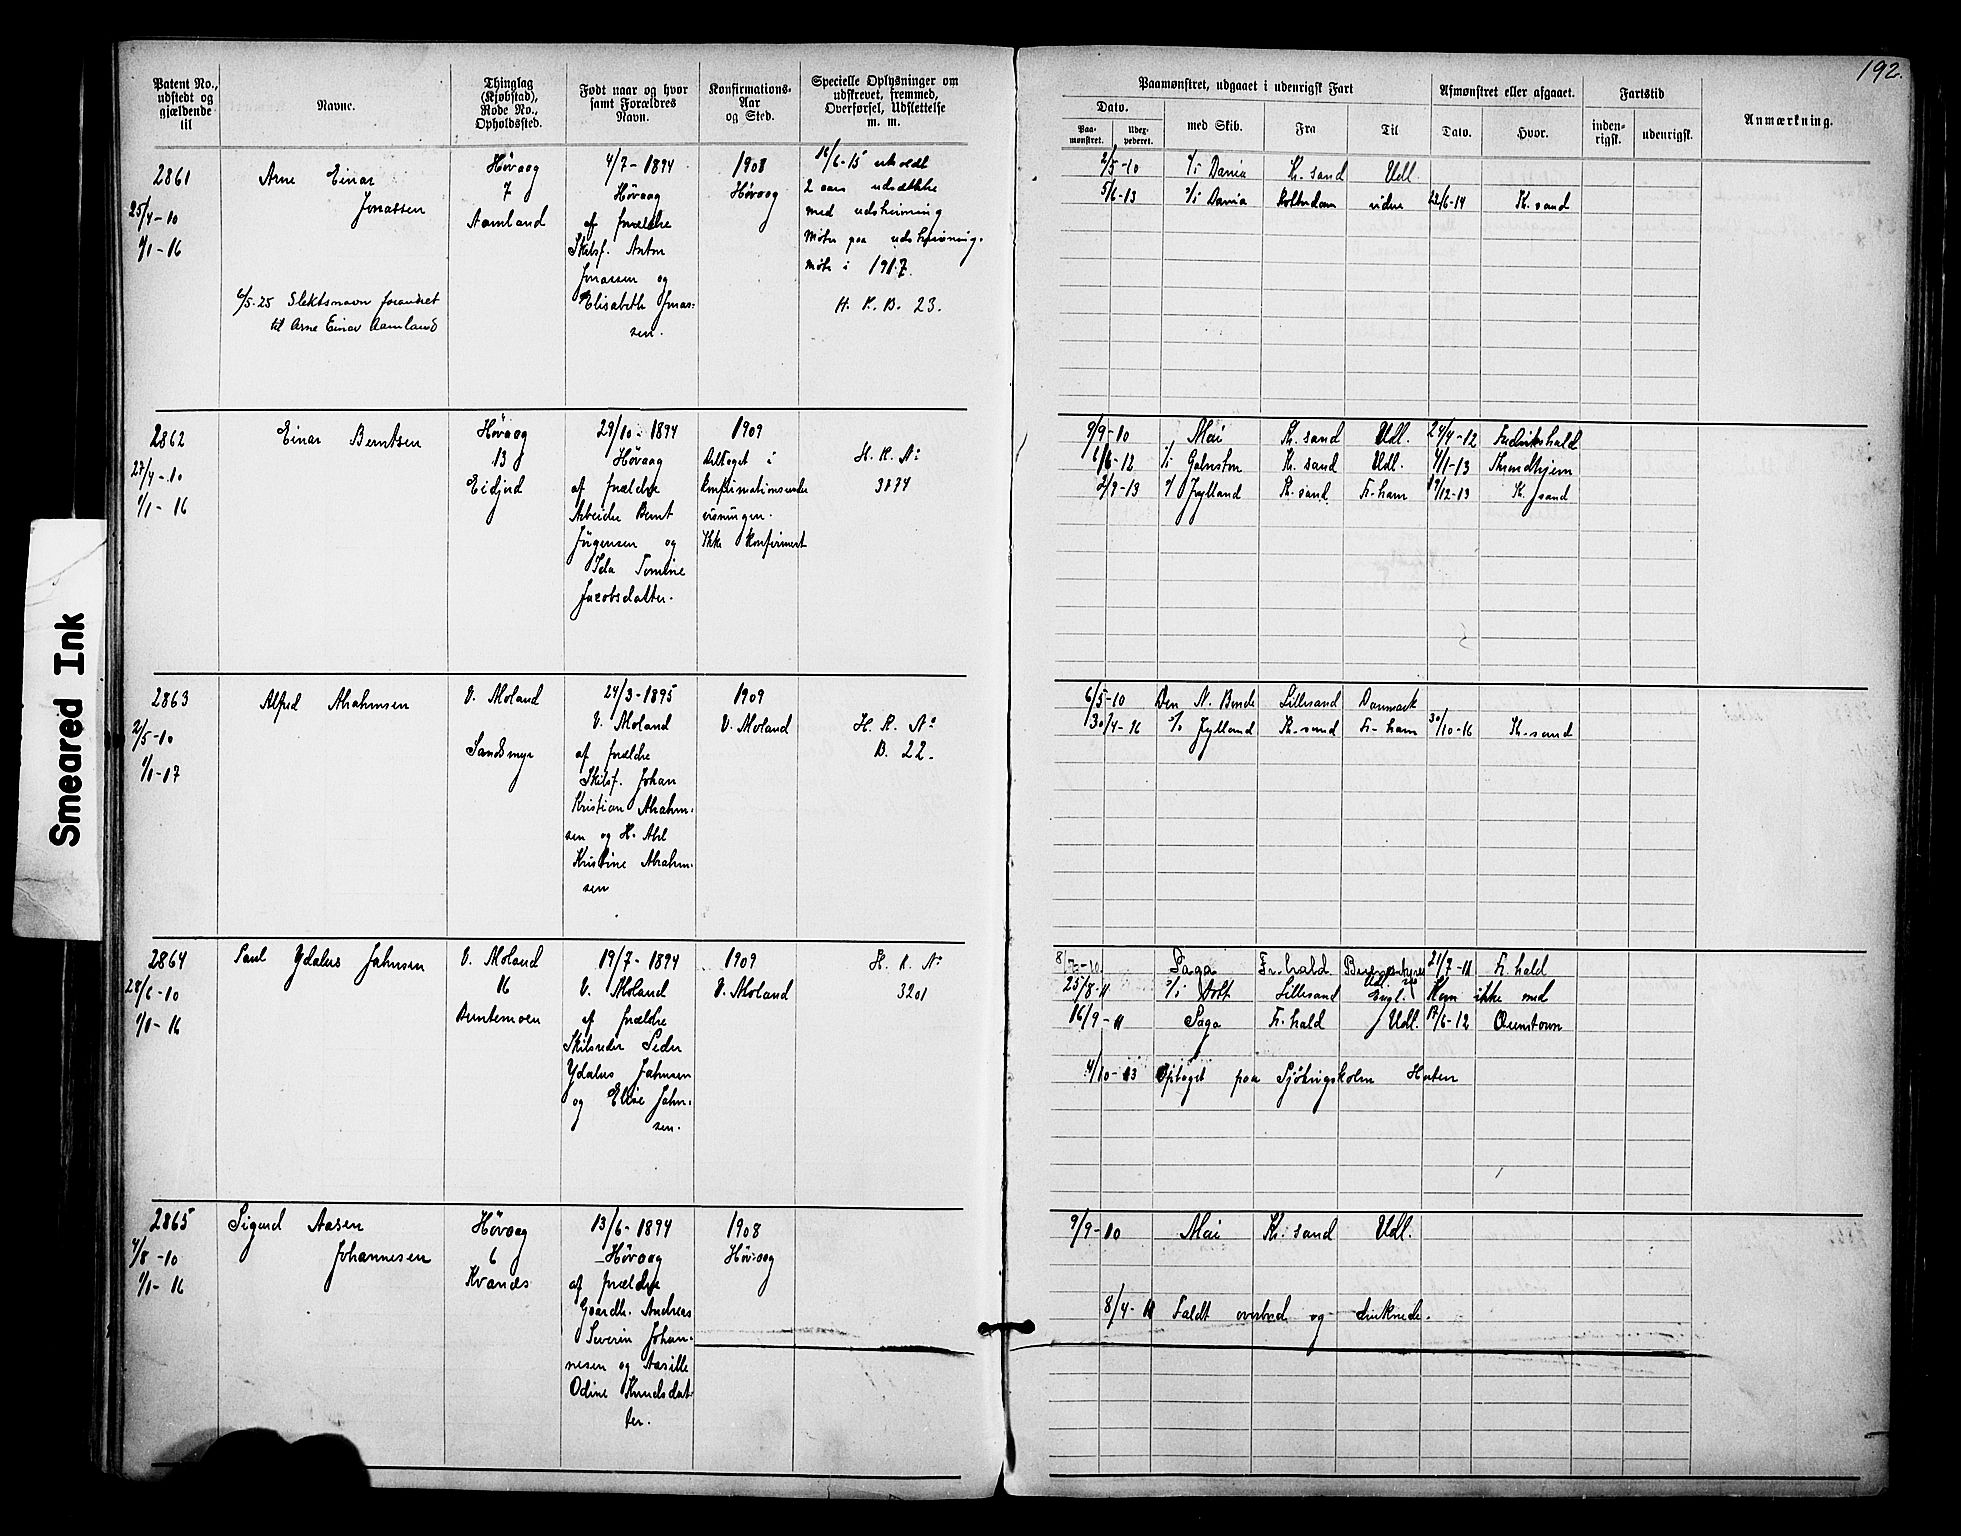 192.
Patent No., udstedt og gjældende til
Navne.
Thinglag (Kjøbstad), Rode No., Opholdssted.
Født naar og hvor samt Forældres Navn.
Konfirmations-Aar og Sted.
Specielle Oplysninger om udskrevet, fremmed, Overførsel, Udslettelse m. m.
Paamønstret, udgaaet i udenrigsk Fart
Dato.
Paa-mønstret.
Udex-pederet.
med Skib.
Fra
Til
Afmønstret eller afgaaet.
Dato.
Hvor.
Fartstid
inden-rigsk.
udenrigsk.
Anmærkning.
2861
25/4-10
1/1-16
Arne Einar
Jonassen
6/5-25 Slektsnavn forandret
til Arne Einar Aamland
Høvaag
7
Aamland
4/7-1894
Høvaag
af forældre
Skibsf. Anton
Jonassen og
Elisabeth Jonas-
sen.
1908
Høvaag
16/6-15 utholdt
2 aars udsættelse
med udskrivning
Møter paa udskrivning.
møte i 1917.
H. R. B. 23.
2/5-10 Dania Kr. sand Udl.
5/6-13 Dania Rotterdam videre 22/6-14 Kr. sand
2862
27/4-10
1/1-16
Einar Berntsen
Høvaag
13
Eidjord
29/10-1894
Høvaag
af forældre
Arbeider Bernt
Jørgensen og
Ida Tomine
Jacobsdatter.
1909
Deltaget i
konfirmationsunder
visningen.
Ikke konfirmert
H. R. A:
3874
9/9-10 Mai Kr. sand Udl. 24/4-12 Fredrikshald
6/6-12 Kr. sand Udl. 4/1-13 Thrundhjem
2/9-13 Jylland Kr. sand Fr-havn 19/12-13 Kr. sand
2863
2/5-10
1/1-17
Alfred Abrahmsen
V. Moland
Sandsmyr
24/3-1895
V. Moland
af forældre
Skibsf. Johan
Kristian Abrahm-
sen og H. Abel
Kristine Abrahm-
sen
1909
V. Moland
H. R. A:
B. 22.
6/5-10 Den N. Bonde Lillesand Danmark
30/4-16 Jylland Kr. sand Fr-havn 30/10-16 Kr. sand
2864
28/6-10
1/1-16
Paul Ydalus Jahnsen
V. Moland
16
Berntemoen
19/7-1894
V. Moland
af forældre
Skibsreder Peder
Ydalus Jahnsen
og Elise Jahn-
sen.
1909
V. Moland
H. R. A:
3201
Saga Fr. hald 21/7-11 Fr. hald
25/8-11 Lillesand Engl. Kom ikke med
16/9-11 Saga Fr. hald Udl. 17/6-12 Qeenstown
4/10-13 Optaget paa Sjökrigskolen Horten
2865
4/8-10
1/1-16
Sigurd Aasen
Johannesen
Høvaag
6
Kvanes
13/6-1894
Høvaag
af forældre
Gaardb. Andreas
Severin Johan-
nesen og Aasille
Odine Knudsdat-
ter.
1908
Høvaag
9/9-10 Mai Kr. sand Udl.
8/4-11 Faldt overbord og druknede.
Smeared Ink